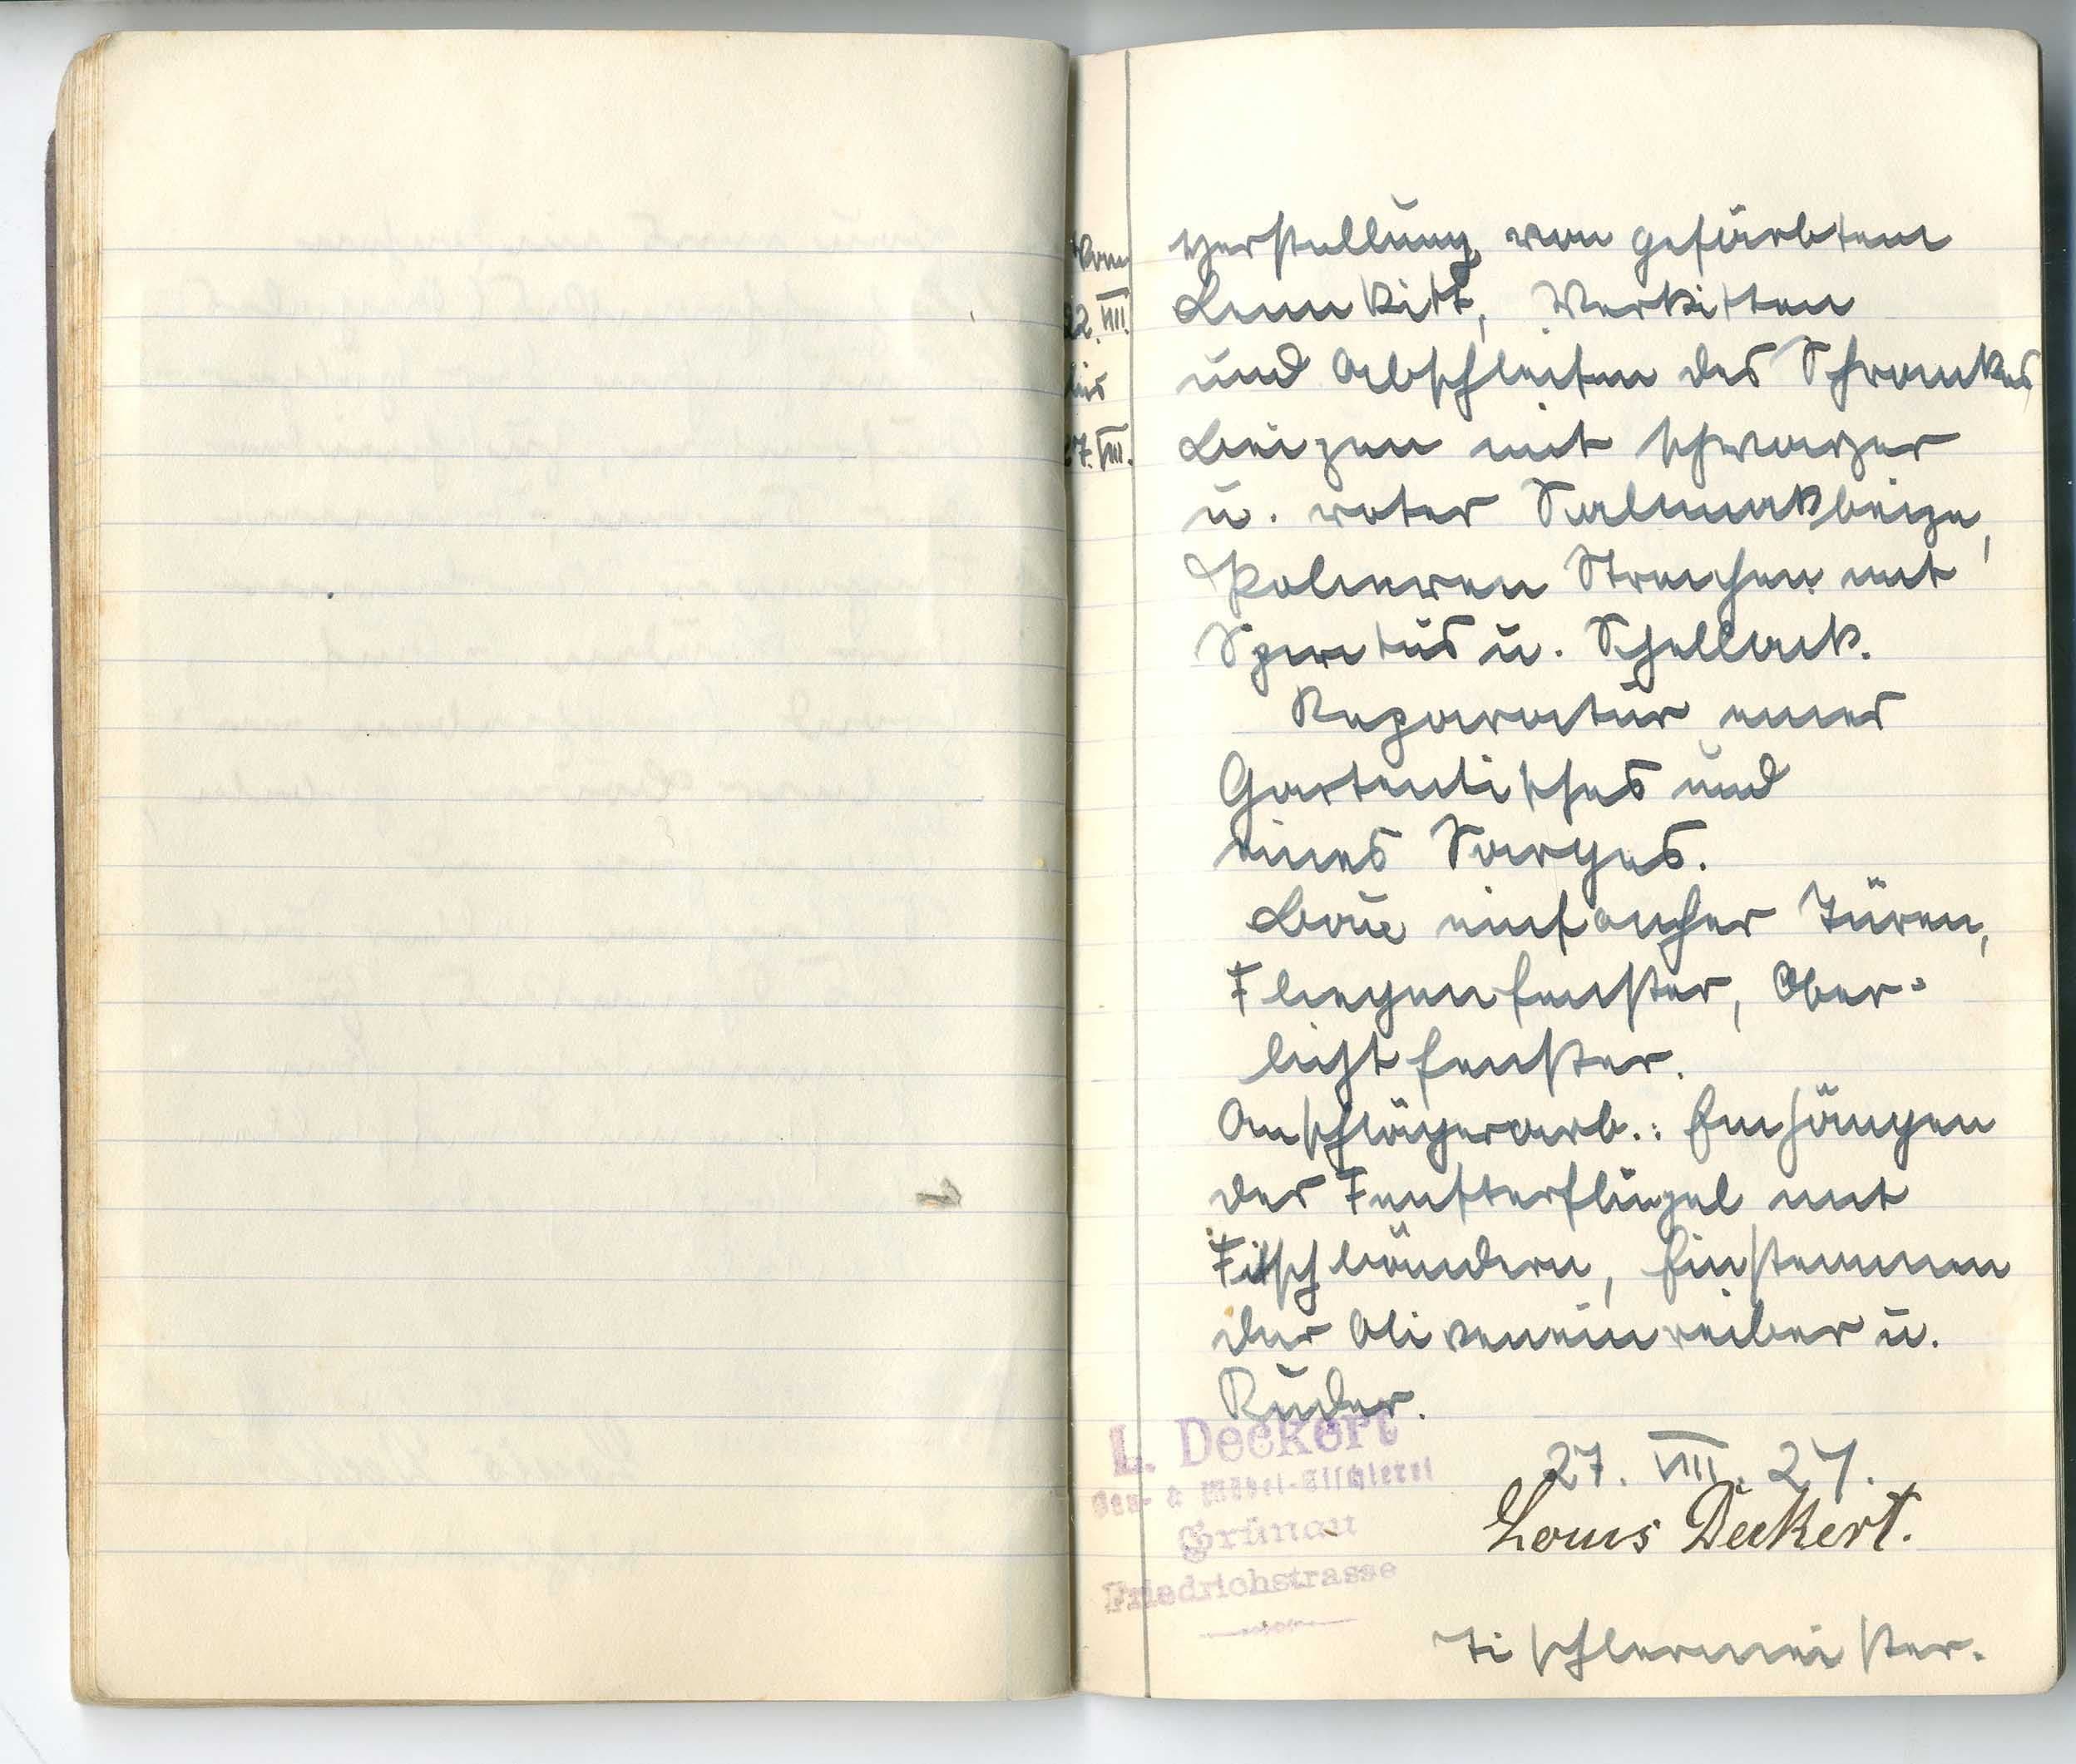 Vom
22. VIII.
bis
27. VIII.
Herstellung von gefärbtem
Leimkitt, Verkitten
und Abschleifen des Schrankes
Beizen mit schwarzer
u. roter Salmiakbeize,
Polieren Streichen mit
Spiritus u. Schellack.
Reparatur eines
Gartentisches und
eines Sarges.
Baue einfacher Türen,
Fliegenfenster, Ober-
lichtfenster.
Anschlägerarb.: Einhängen
der Fensterflügel mit
Fitschbändern, Einstemmen
der Oliveneinreiber u.
Ruder.
27. VIII. 27.
Louis Deckert.
Tischlermeister.
L. Deckert
Bau- & Möbel-Tischlerei
Grünau
Friedrichstrasse